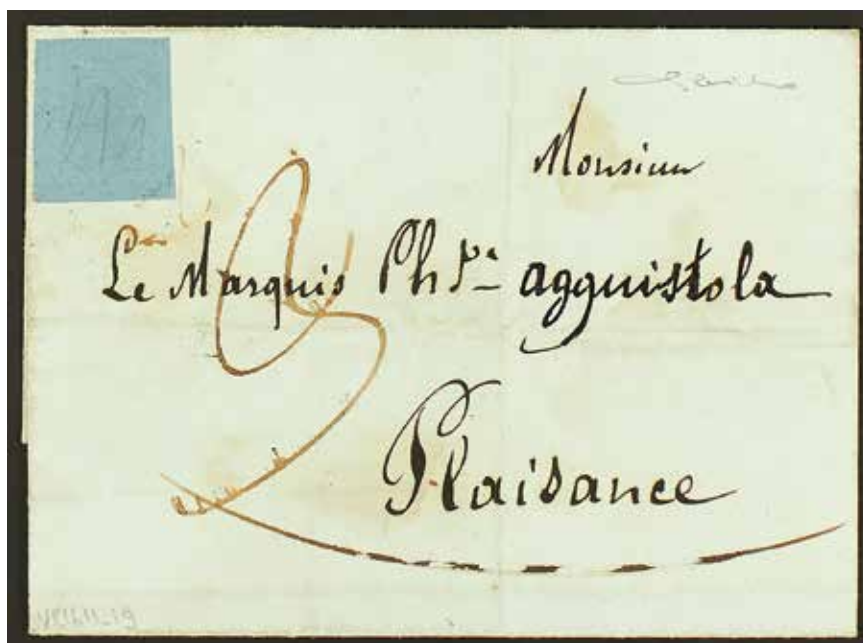 Monsieur
Le Marquis Ph pe agguistola
Plaisance